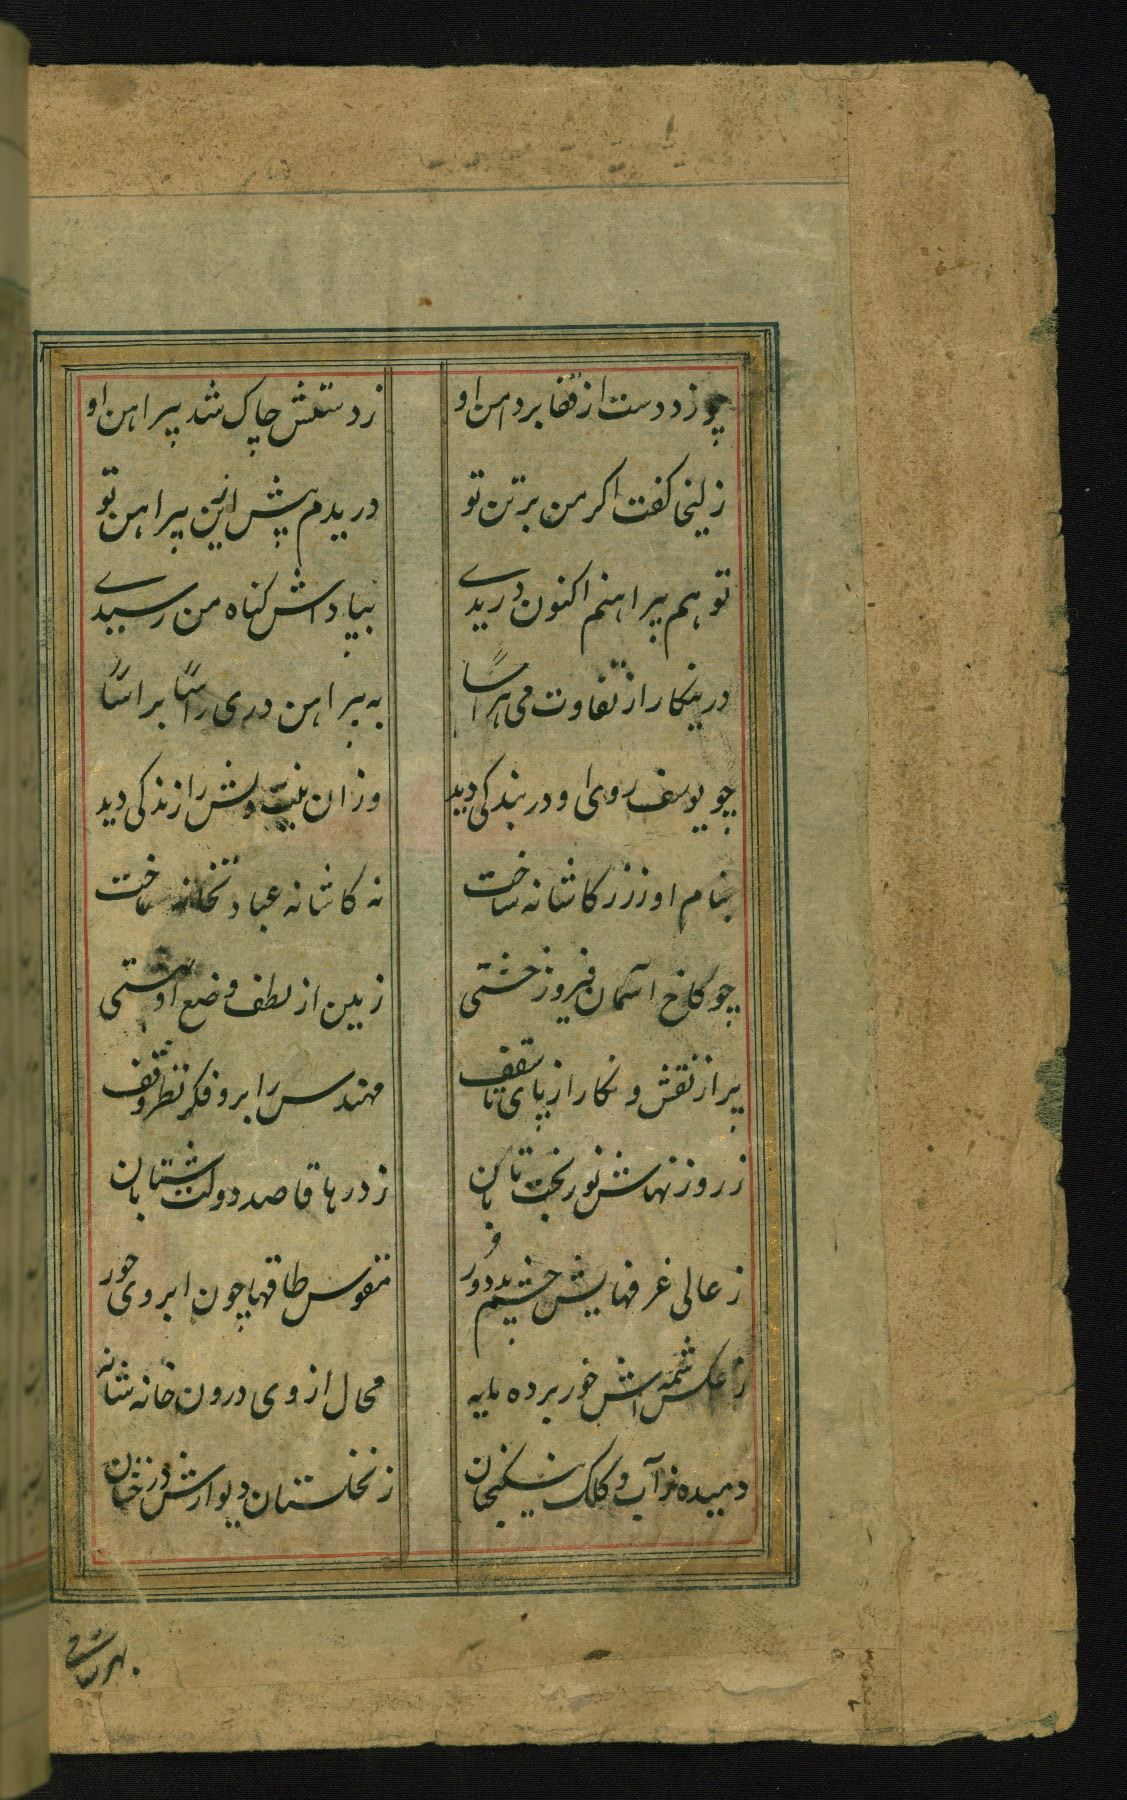 چو زد دست از قفا بر دامن او زدستش چاک شد پیراهن او
زلیخا کفت اکر من بر تن تو دریدم پیش ازین پیراهن تو
تو هم پیراهنم اکنون دریدے بپاداش کناه من رسیدے
درینکار از تفاوت می هراسا به پیراهن دری راسا براسا
چو یوسف روی او در بندکی دید وزان نیت دلش را زندکی دید
بنام او ز زر کاشانه ساخت نه کاشانه عبادتخانه ساخت
چو کاخ آسمان فیروز خشتی زمین از لطف وضع او بهشتی
پر از نقش و نکار از پای تا سقف مهندس را برو فکر و نظر وقف
ز روزنهاش نور بخت تابان ز درها قاصد دولت شتابان
ز عالی غرفهایش چشم بد دور مقوس طاقها چون ابروی حور
ز عکس شمسه اش خور برده مایه محال از وی درون خانه سایه
دمیده ز آب و کلک ز نخلستان دیوارش درختان
بهر شاخی